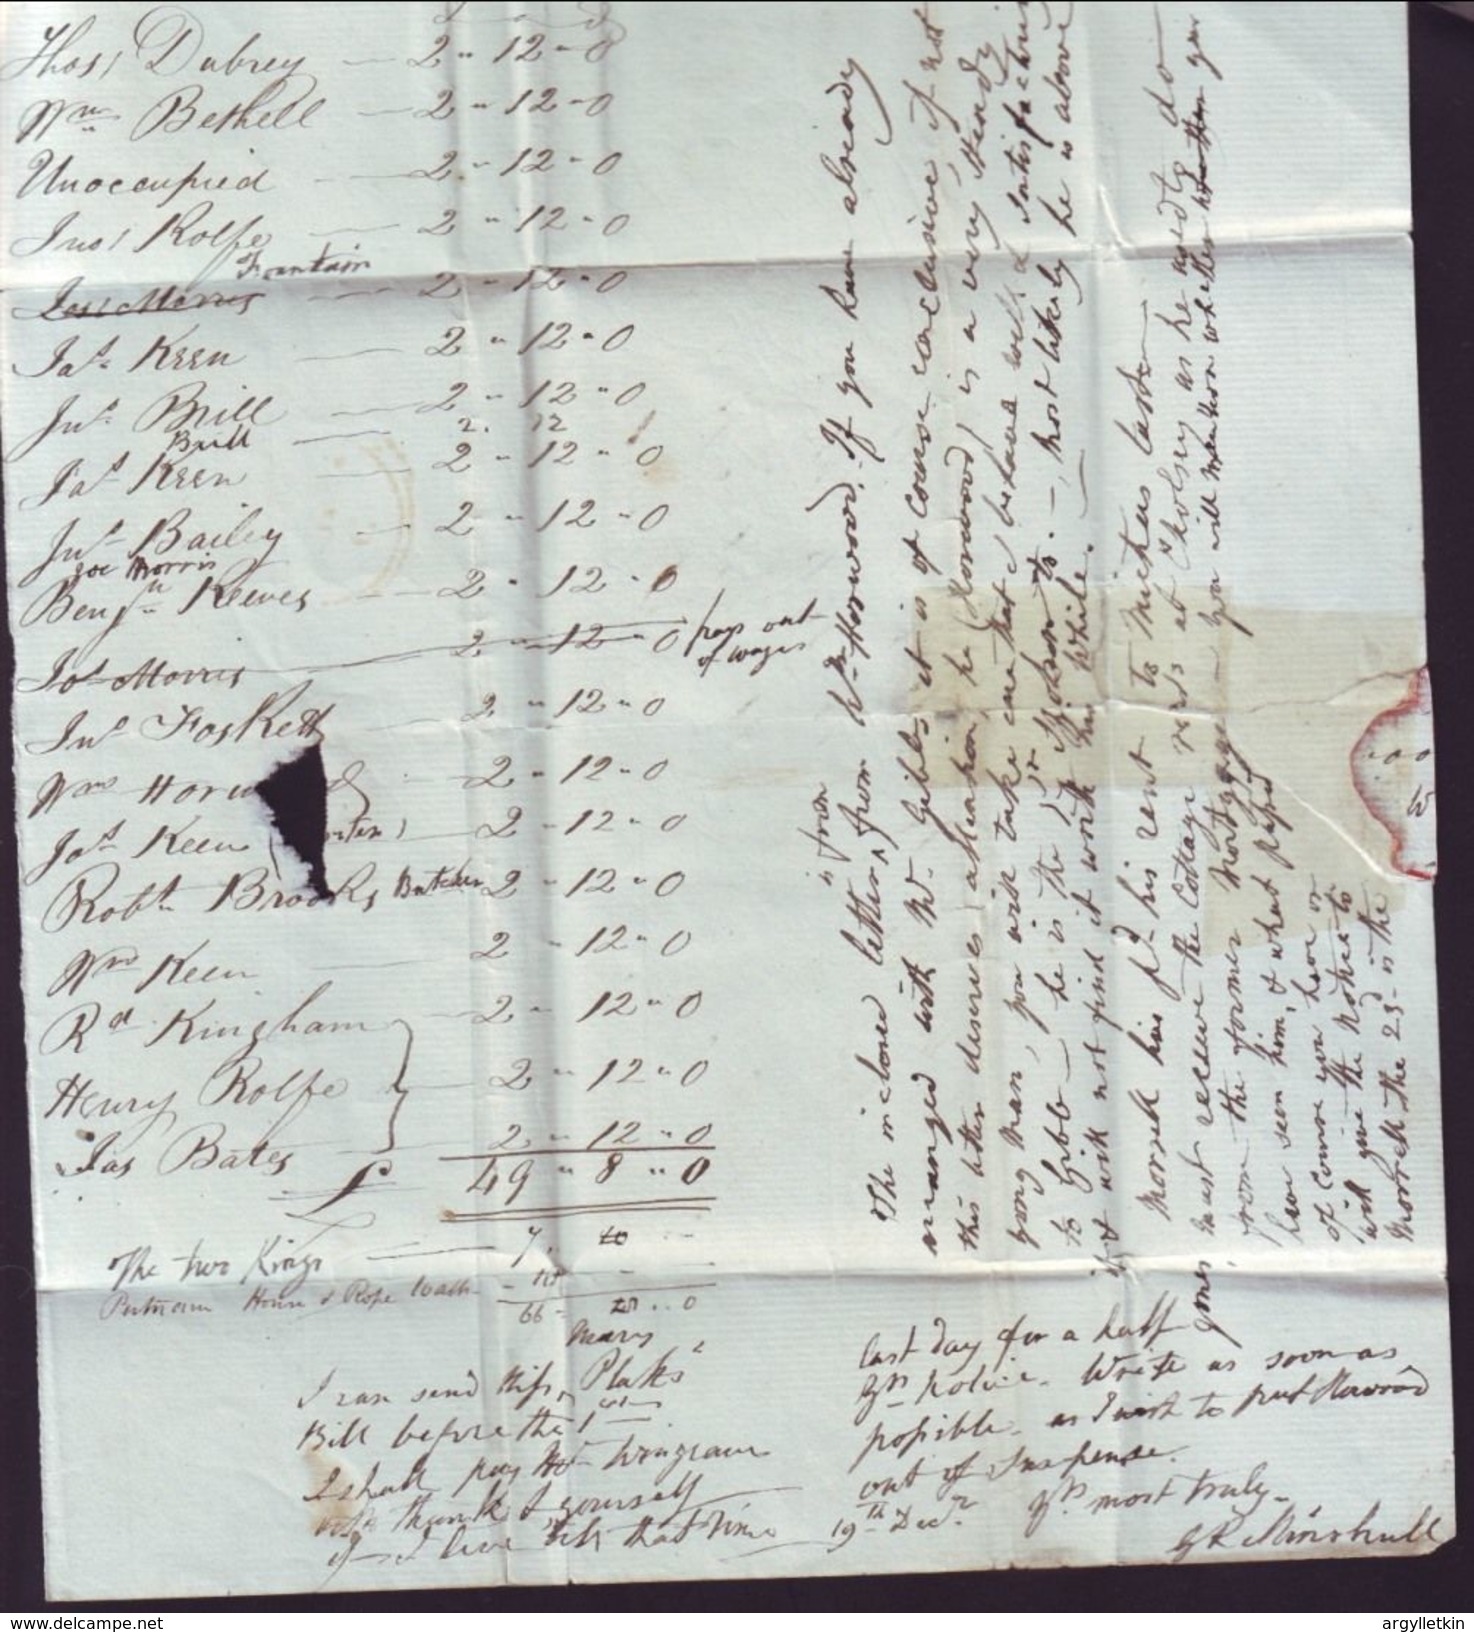 Thos; Dubrey — 2 " 12 - 0
Wm Bethell — 2 " 12 - 0
Unoccupied — 2 " 12 - 0
Jno; Rolfe — 2 " 12 - 0
Fountain
Jas; Morris — 2 - 12 - 0
Jas. Keen — 2 " 12 " 0
Jno. Brill — 2 - 12 " 0
Brill — 2. 12
Jas. Keen — 2 - 12 - 0
Jno. Bailey — 2 " 12 " 0
Joe Morris
Benjn Reeves — 2 " 12 - 0
Jos Morris 2 - 12 - 0 pays out
of wages
Jno Foskett 2 " 12 " 0
Wm Horw d 2 - 12 - 0
Jas Keen — 2 - 12 - 0
Robt. Brooks Butcher 2 - 12 - 0
Wm Keen — 2 - 12 - 0
Rd Kingham — 2 - 12 " 0
Henry Rolfe — 2 " 12 - 0
Jas Bates — 2 " 12 - 0
£ 49 " 8 " 0
The two Kings — 7.
Putnam House & Rope walk
66 - 0
Mary
I can send this, Plaks
Bill before the 1st
I shall pay Mr Wingrave
with thanks & yourself
if I live till that time
The inclosed letter from Wm Horwood. If you have already
arranged with Mr. Gibbs it is of course conclusive, if not
this letter deserves attention, he (Horwood) is a very steady
young man, you will take care that I behaved well & satisfactorily
to Gibbs — he is the 1st I spoken to. —, most likely he is above
it & will not find it worth his while. —
Morrell has pd. his rent to Mickes last
must receive the Cottage rents at Cholsey as he used to do
from the former Mortgage — you will mention whether you
have seen him, & what passed
of course you have or
will give the notice to
Morrell the 25 is the
last day for a half
yrs notice. Write as soon as
possible. as I wish to put Horwood
out of suspense.
19th Decr. Yrs. most truly.
GR Minshull
W
www.delcampe.net
argylletkin